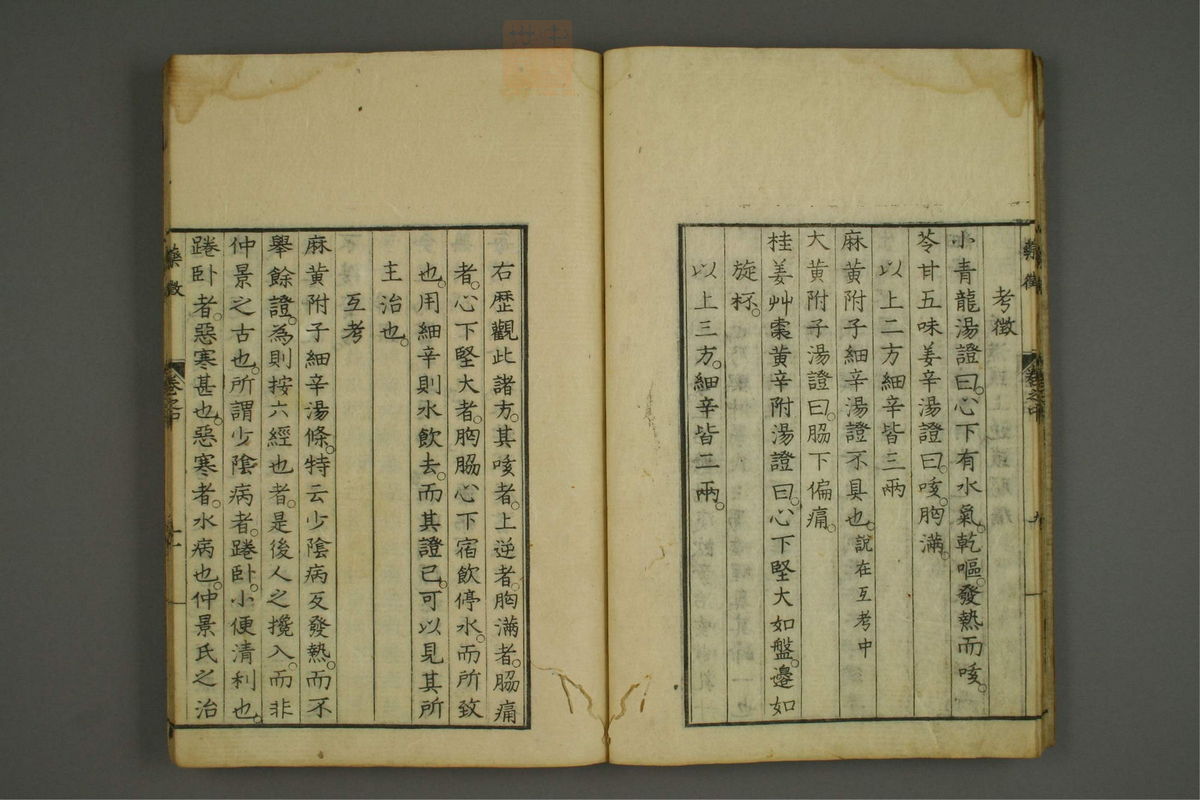 藥徵
卷之中
九
考徵
小青龍湯證曰。心下有水氣。乾嘔。發熱而咳。
苓甘五味姜辛湯證曰。咳。胸滿。
以上二方細辛皆三兩
麻黄附子細辛湯證不具也。說在互考中
大黄附子湯證曰。脇下偏痛。
桂姜艸棗黄辛附湯證曰。心下堅大如盤。邊如
旋杯。
以上三方。細辛皆二兩。
右歷觀此諸方。其咳者。上逆者。胸滿者。脇痛
者。心下堅大者。胸脇心下宿飲停水。而所致
也。用細辛則水飲去。而其證已。可以見其所
主治也。
互考
麻黄附子細辛湯條。特云少陰病反發熱。而不
舉餘證。為則按六經也者。是後人之攙入。而非
仲景之古也。所謂少陰病者。踡卧。小便清利也。
踡卧者。惡寒甚也。惡寒者。水病也。仲景氏之治
藥徵
卷之中